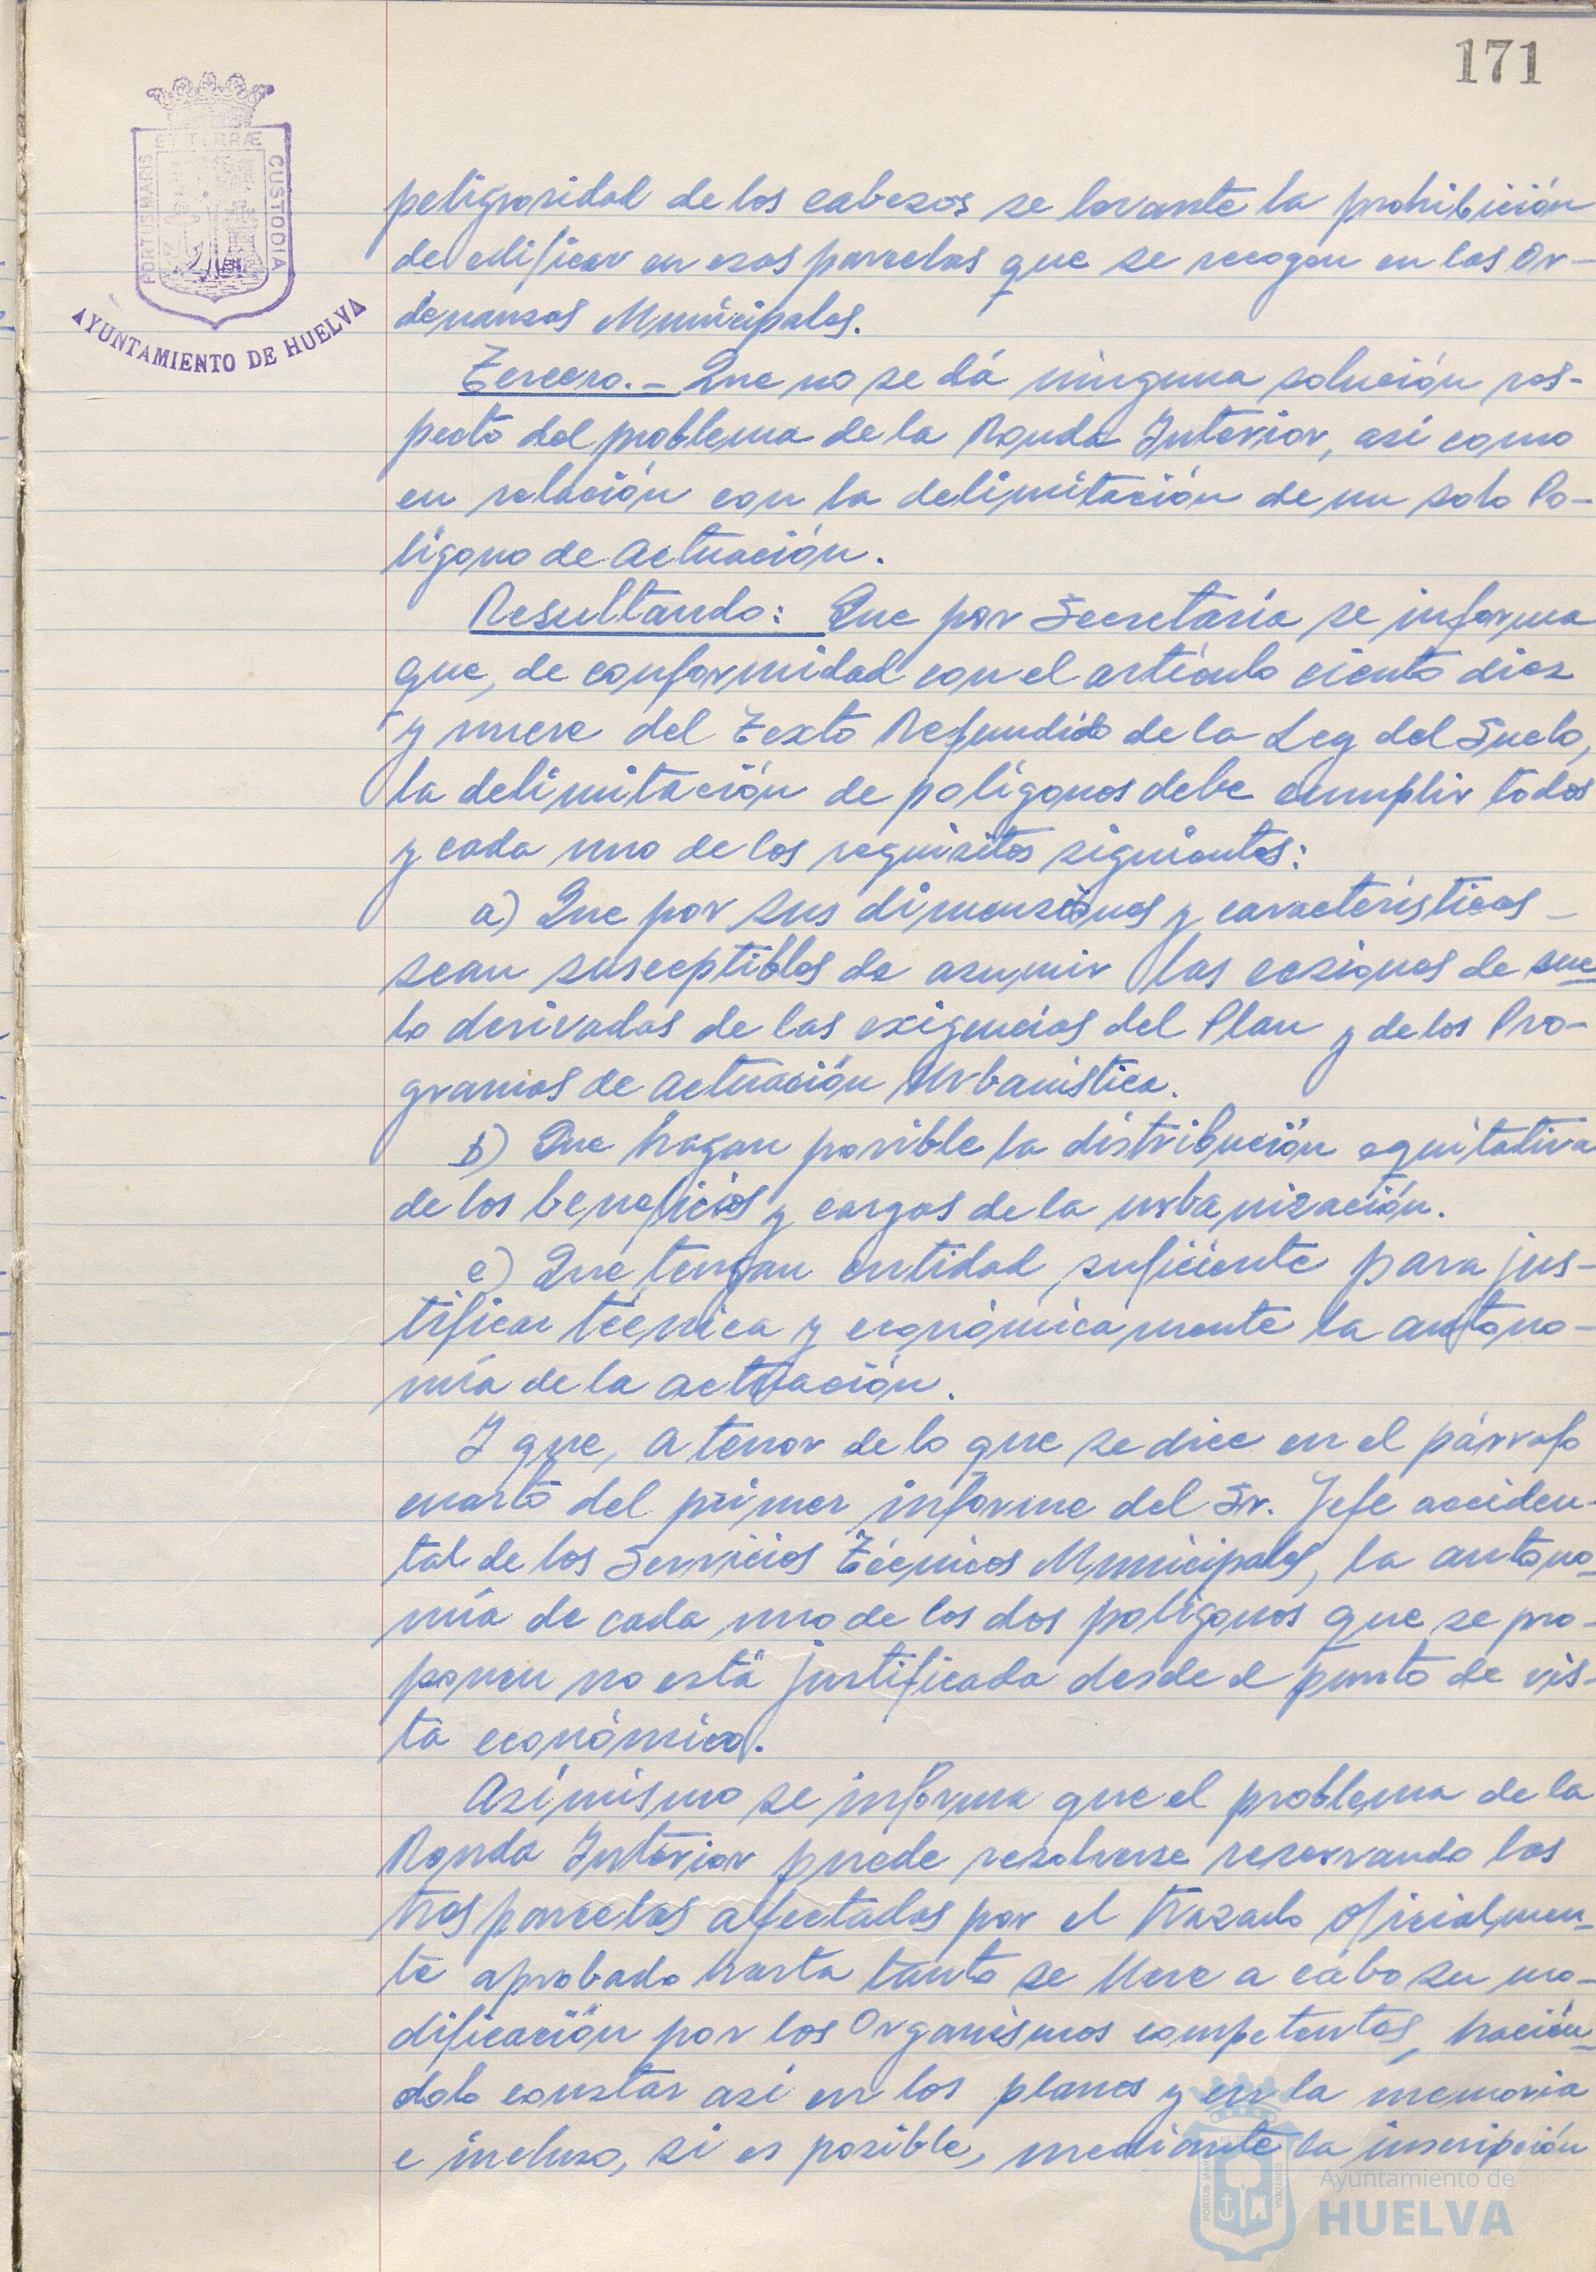 171
PORTUS MARIS ET TERRÆ CUSTODIA
AYUNTAMIENTO DE HUELVA
peligrosidad de los cabezos se levante la prohibición
de edificar en esas parcelas que se recogen en las Or-
denanzas Municipales.
Tercero.- Que no se dá ninguna solución res-
pecto del problema de la Ronda Interior, asi como
en relación con la delimitación de un solo Po-
lígono de actuación.
Resultando: Que por Secretaría se informa
que, de conformidad con el artículo ciento diez
y nueve del Texto Refundido de la Ley del Suelo,
la delimitación de polígonos debe cumplir todos
y cada uno de los requisitos siguientes:
a) Que por sus dimensiones y características -
sean susceptibles de asumir las cesiones de sue
lo derivadas de las exigencias del Plan y de los Pro-
gramas de actuación Urbanística.
b) Que hagan posible la distribución equitativa
de los beneficios y cargas de la urbanización.
c) Que tengan entidad suficiente para jus-
tificar técnica y económicamente la autono-
mía de la actuación.
Y que, a tenor de lo que se dice en el párrafo
cuarto del primer informe del Sr. Jefe acciden-
tal de los Servicios Técnicos Municipales, la autono-
mía de cada uno de los dos polígonos que se pro-
ponen no está justificada desde el punto de vis-
ta económico.
Asimismo se informa que el problema de la
Ronda Interior puede resolverse reservando las
tres parcelas afectadas por el trazado oficialmen-
te aprobado hasta tanto se lleve a cabo su mo-
dificación por los Organismos competentes, hacién-
dolo constar así en los planos y en la memoria
e incluso, si es posible, mediante la inscripción
Ayuntamiento de
HUELVA